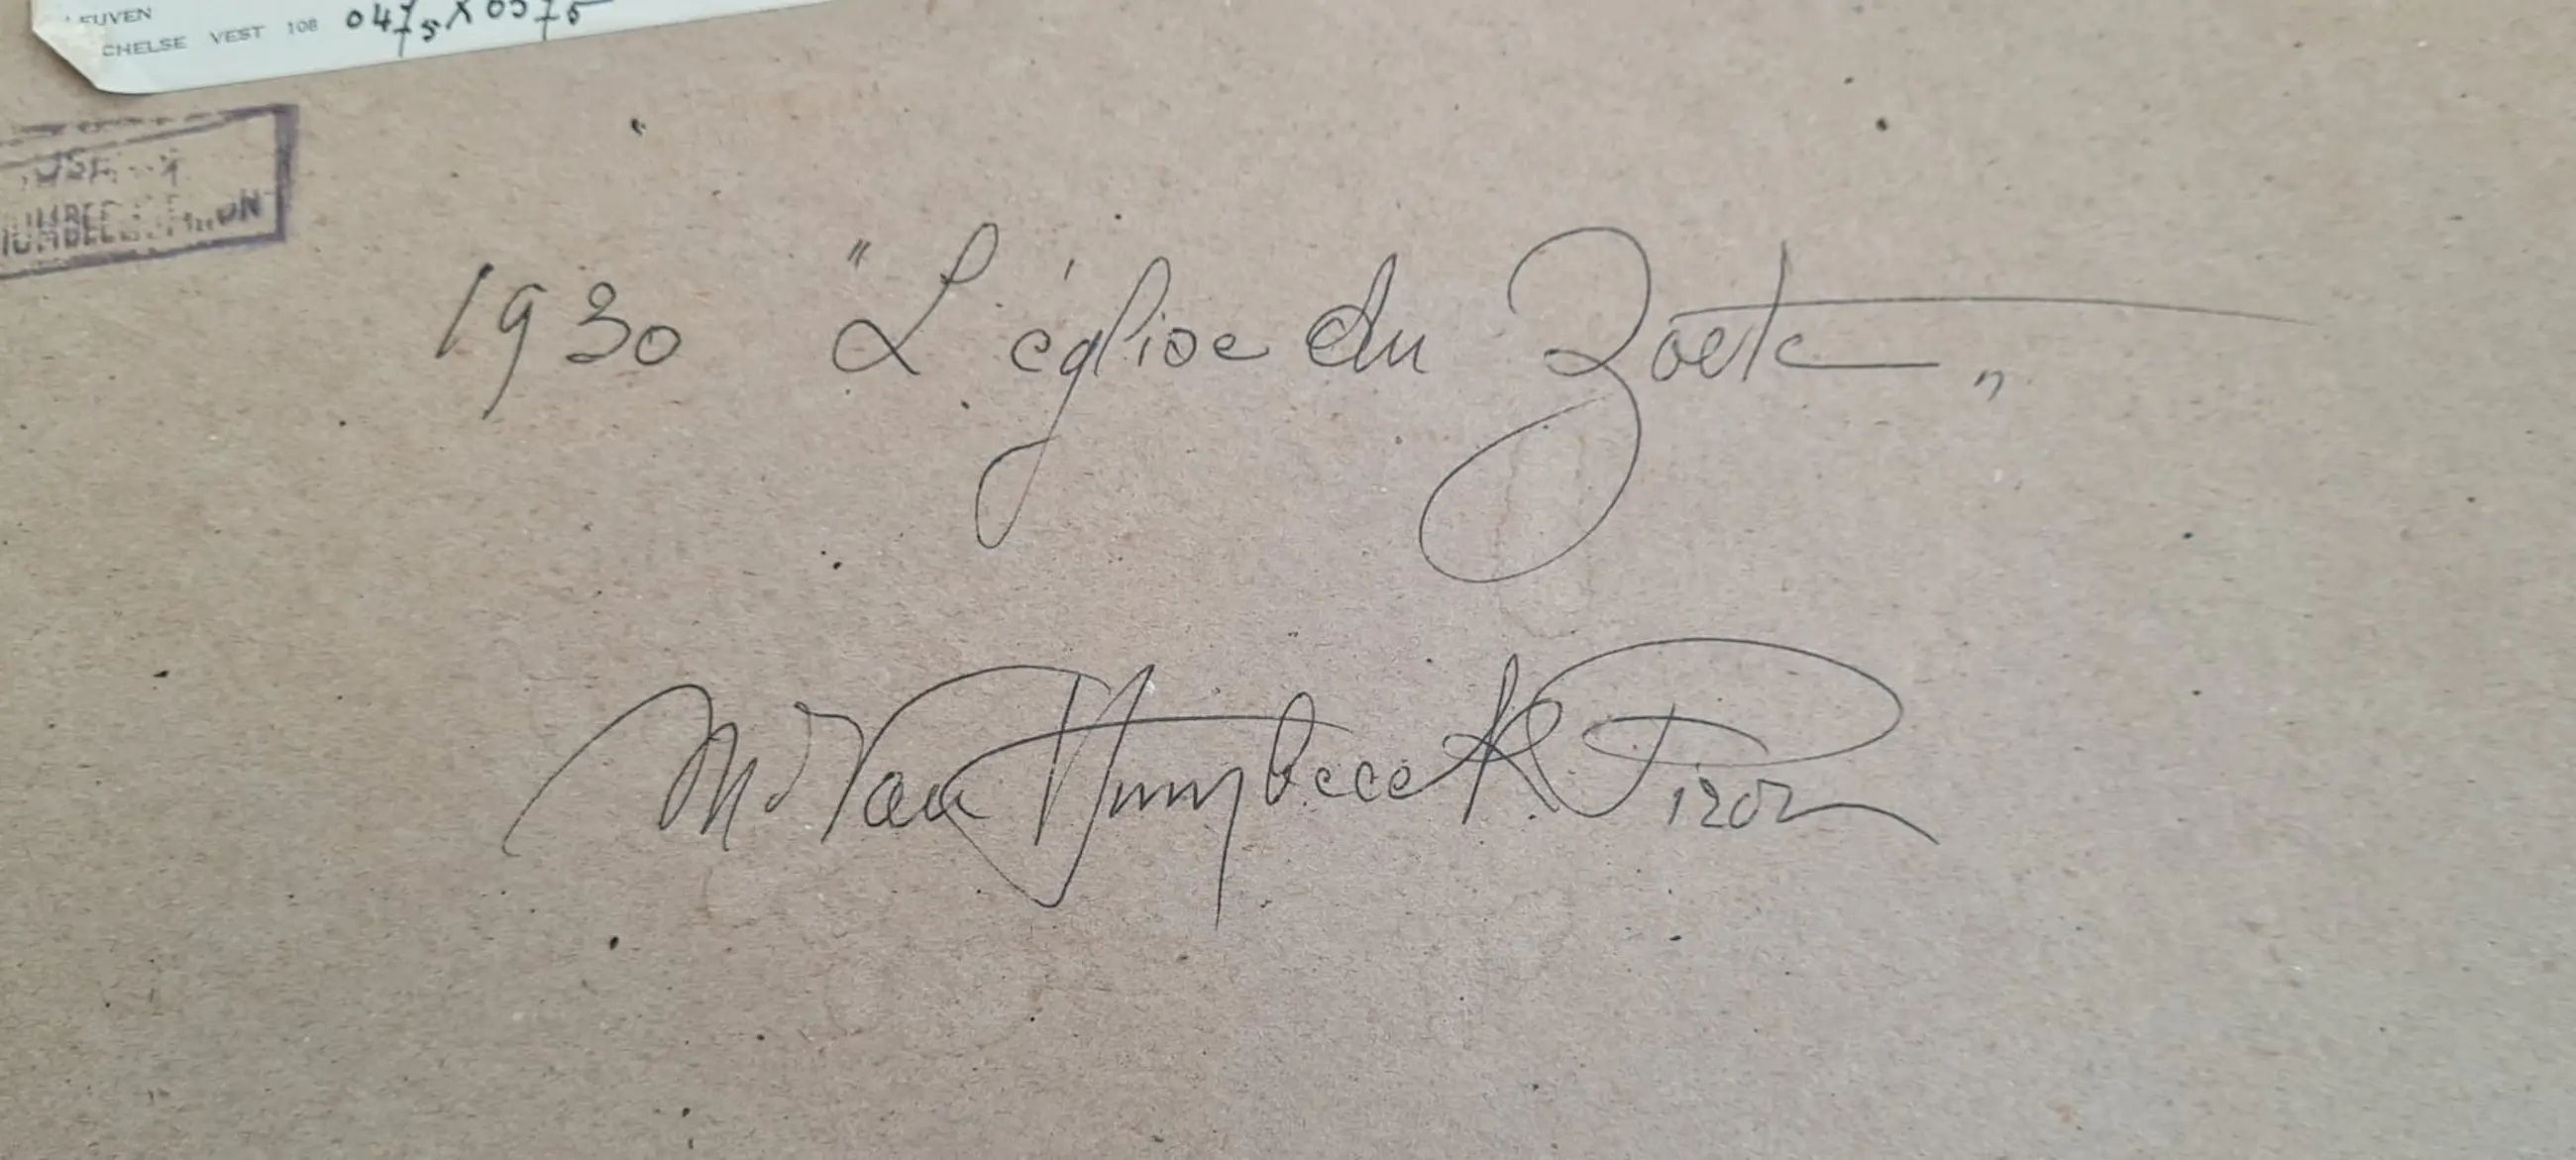 LEUVEN
CHELSE VEST 108 0475 X 0575
1930 " L'église du Zoute "
M. Van Humbeeck Piron